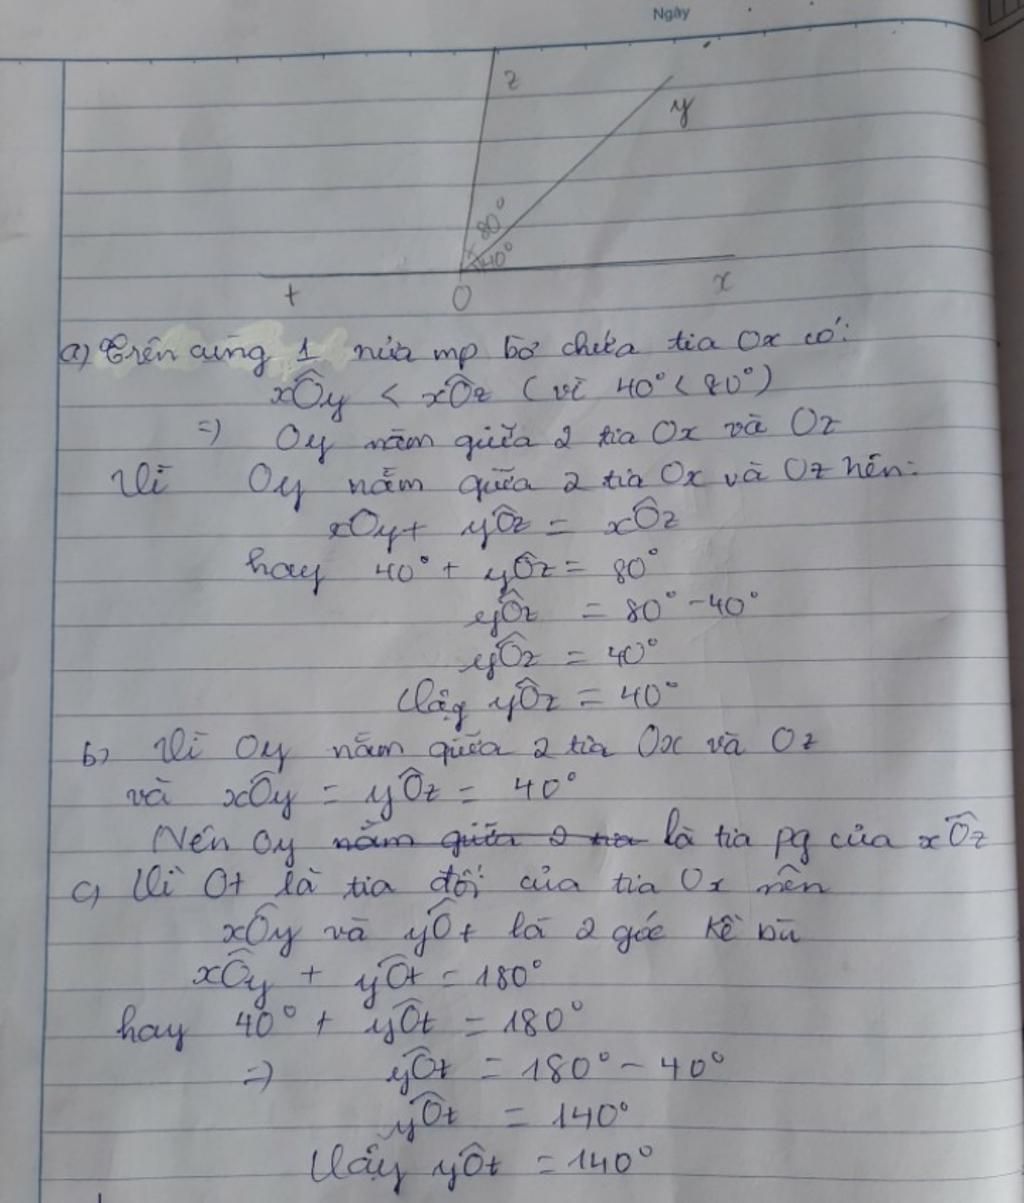 Ngày
z
y
80°
40°
t
O
x
a) Trên cùng 1 nửa mp bờ chứa tia Ox có:
xÔy < xÔz (vì 40° < 80°)
=) Oy nằm giữa 2 tia Ox và Oz
Vì Oy nằm giữa 2 tia Ox và Oz nên:
xOy + yÔz = xÔz
hay 40° + yÔz = 80°
yÔz = 80° - 40°
yÔz = 40°
Vậy yÔz = 40°
b) Vì Oy nằm giữa 2 tia Ox và Oz
và xÔy = yÔz = 40°
Nên Oy nằm giữa 2 tia là tia pg của xÔz
c) Vì Ot là tia đối của tia Ox nên
xÔy và yÔt là 2 góc kề bù
xÔy + yÔt = 180°
hay 40° + yÔt = 180°
=) yÔt = 180° - 40°
yÔt = 140°
Vậy yÔt = 140°